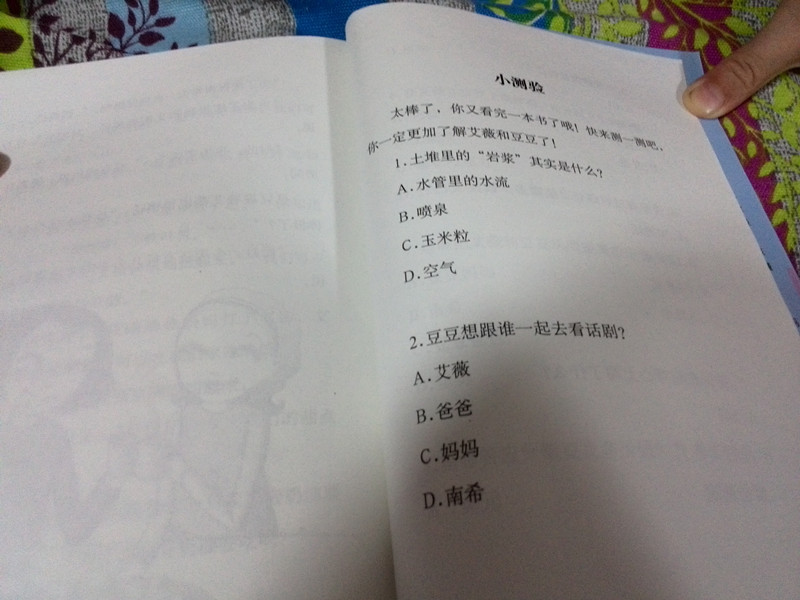 小测验
太棒了，你又看完一本书了哦！快来测一测吧，
你一定更加了解艾薇和豆豆了！
1.土堆里的“岩浆”其实是什么？
A.水管里的水流
B.喷泉
C.玉米粒
D.空气
2.豆豆想跟谁一起去看话剧？
A.艾薇
B.爸爸
C.妈妈
D.南希